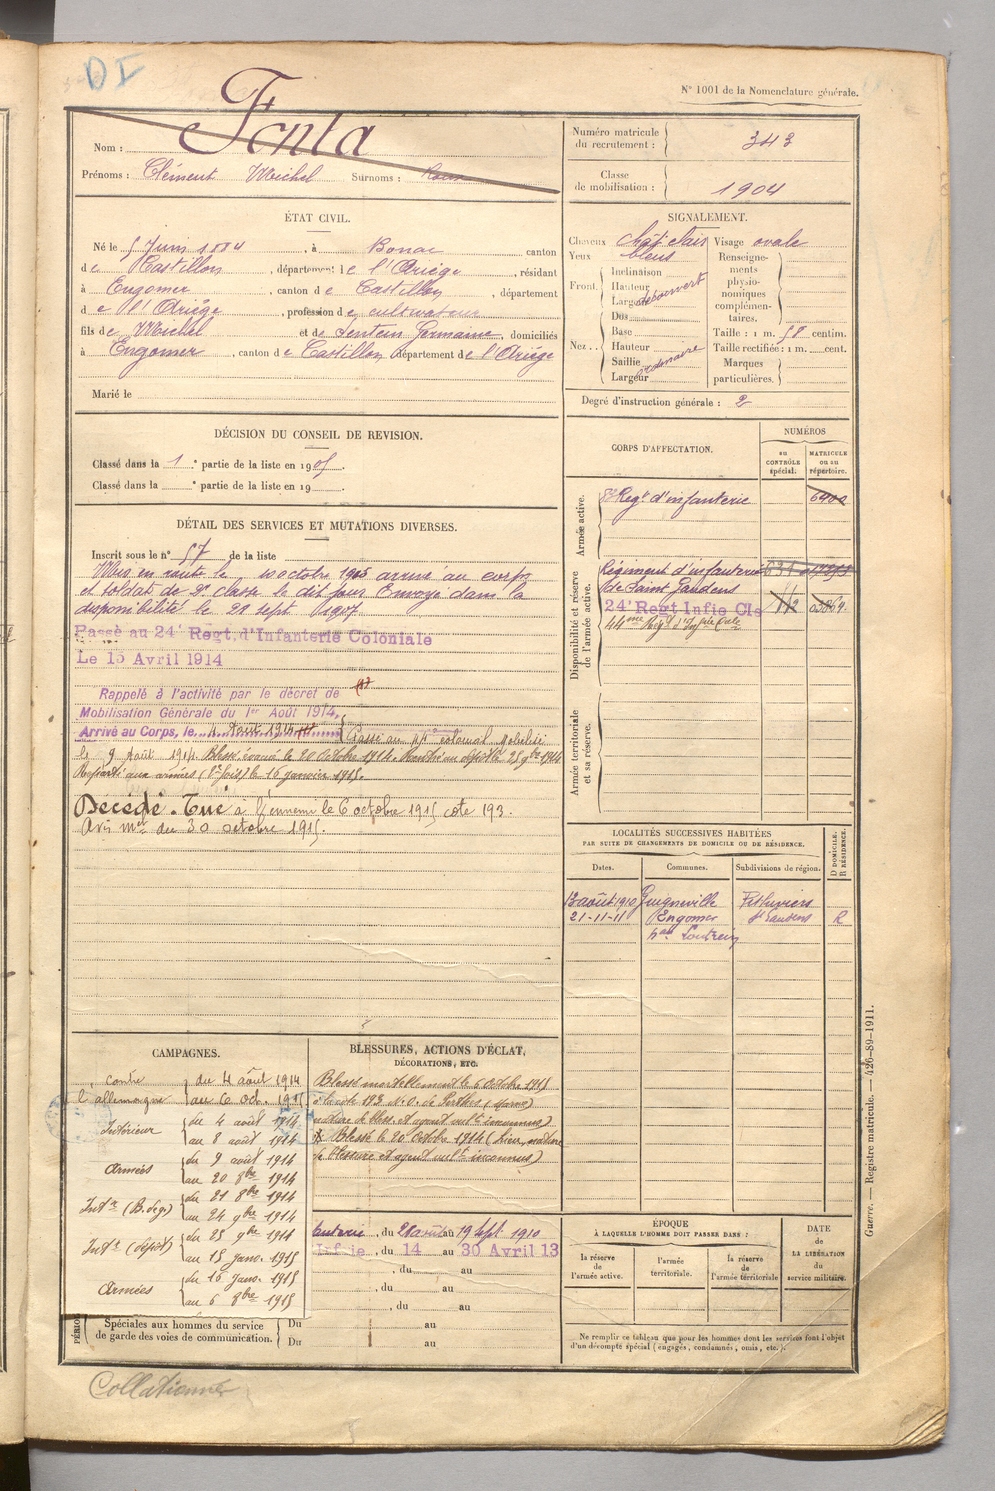 DI
N° 1001 de la Nomenclature générale.
Nom : Fonta
Prénoms : Clément Michel Surnoms :
Numéro matricule du recrutement : 343
Classe de mobilisation : 1904
ÉTAT CIVIL.
Né le 5 Juin 1884, à Bonac canton
de Castillon, département de l'Ariège, résidant
à Engomer, canton de Castillon, département
de l'Ariège, profession de cultivateur
fils de Michel et de Sentein Germaine, domiciliés
à Engomer, canton de Castillon, département de l'Ariège
Marié le
SIGNALEMENT.
Cheveux chât. clairs Visage ovale
Yeux bleus
Front. Inclinaison
Hauteur
Largeur découvert
Nez.. Dos
Base
Hauteur
Saillie
Largeur ordinaire
Renseignements physionomiques complémentaires.
Taille : 1 m. 58 centim.
Taille rectifiée : 1 m. cent.
Marques particulières.
Degré d'instruction générale : 2
DÉCISION DU CONSEIL DE REVISION.
Classé dans la 1 e partie de la liste en 1905.
Classé dans la e partie de la liste en 19
DÉTAIL DES SERVICES ET MUTATIONS DIVERSES.
Inscrit sous le n° 57 de la liste
Mis en route le 10 octobre 1905 arrivé au corps
et soldat de 2e classe le dit jour Envoyé dans la
disponibilité le 21 sept 1907
Passé au 24e Regt. d'Infanterie Coloniale
Le 15 Avril 1914
Rappelé à l'activité par le décret de
Mobilisation Générale du 1er Août 1914,
Arrivé au Corps, le 4 Août 1914 Passé au 44e colonial mobilisé
le 9 Août 1914. Blessé évacué le 20 Octobre 1914. Rentré au dépôt le 25 9bre 1914
Reparti aux armées (2e fois) le 16 janvier 1915.
Décédé. Tué à l'ennemi le 6 octobre 1915 cote 193.
Avis mel du 30 octobre 1915.
CORPS D'AFFECTATION.
NUMÉROS
au CONTRÔLE spécial.
MATRICULE ou au répertoire.
Armée active.
Regt d'infanterie
Disponibilité et réserve de l'armée active.
Régiment d'infanterie
de Saint Gaudens
24e Regt Infie Cle 112
44me Regt d'Infrie Cole
Armée territoriale et sa réserve.
LOCALITÉS SUCCESSIVES HABITÉES
PAR SUITE DE CHANGEMENTS DE DOMICILE OU DE RÉSIDENCE.
Dates. Communes. Subdivisions de région. D DOMICILE. R RÉSIDENCE.
13 août 1910 Guigneville Pithiviers
21-11-11 Engomer St Gaudens R
CAMPAGNES.
contre l'allemagne du 4 août 1914
au 6 oct. 1915
Intérieur du 4 août 1914
au 8 août 1914
Armées du 9 août 1914
au 20 8bre 1914
Intr (B. deg) du 21 8bre 1914
au 24 9bre 1914
Intr (dépôt) du 25 9bre 1914
au 15 janv. 1915
Armées du 16 janv. 1915
au 6 8bre 1915
BLESSURES, ACTIONS D'ÉCLAT,
DÉCORATIONS, ETC.
Blessé mortellement le 6 Octobre 1915
à la cote 193 N.O. de Perthes (Marne)
nature de bless. et agent vulnt inconnus)
Blessé le 20 Octobre 1914 (Lieu, nature
de blessure et agent vulnt inconnus)
anterie, du au 19 Sept 1910
Infie, du 14 au 30 Avril 13
, du au
, du au
, du au
Spéciales aux hommes du service de garde des voies de communication.
Du au
Du au
ÉPOQUE
À LAQUELLE L'HOMME DOIT PASSER DANS :
la réserve de l'armée active.
l'armée territoriale.
la réserve de l'armée territoriale
DATE de LA LIBÉRATION du service militaire.
Ne remplir ce tableau que pour les hommes dont les services font l'objet
d'un décompte spécial (engagés, condamnés, omis, etc.).
Guerre. — Registre matricule. — 426-89-1911.
Collationné